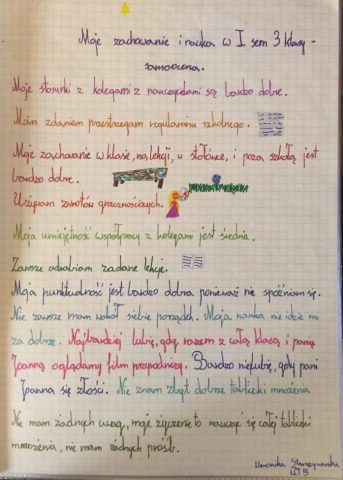 Moje zachowanie i nauka w I sem 3 klasy -
samoocena.
Moje stosunki z kolegami z nauczycielami są bardzo dobre.
Moim zdaniem przestrzegam regulaminu szkolnego.
Moje zachowanie w klasie, na lekcji, w stołówce, i poza szkołą jest
bardzo dobre.
Używam zwrotów grzecznościowych.
Moja umiejętność współpracy z kolegami jest średnia.
Zawsze odrabiam zadane lekcje.
Moja punktualność jest bardzo dobra ponieważ nie spóźniam się.
Nie zawsze mam wokół siebie porządek. Moja nauka nie idzie mi
za dobrze. Najbardziej lubię, gdy razem z całą klasą i panią
Joanną oglądamy film przyrodniczy. Bardzo nie lubię, gdy pani
Joanna się złości. Nie znam zbyt dobrze tabliczki mnożenia
Nie mam żadnych uwag, moje życzenie to nauczyć się całej tabliczki
mnożenia, nie mam żadnych próśb.
Weronika